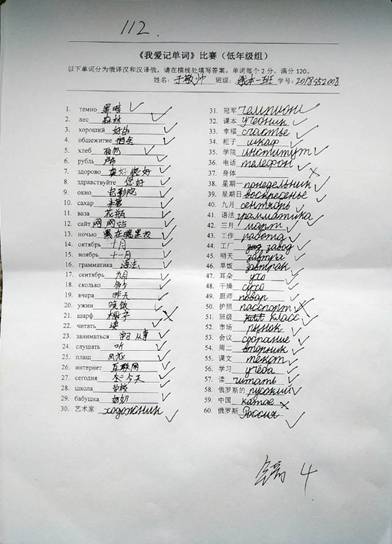 112
《我爱记单词》比赛(低年级组)
以下单词分为俄译汉和汉译俄,请在横线处填写答案。单词每个2分,满分120。
姓名: 班级: 一班 学号: 2018352008
1. темно 黑暗
2. лес 森林
3. хороший 好的
4. общежитие 宿舍
5. хлеб
6. рубль
7. здорово 很好
8. здравствуйте 您好
9. окно
10. сахар
11. ваза 花瓶
12. сайт 网站
13. ночью
14. октябрь 十月
15. ноябрь 十一月
16. грамматика 语法
17. сентябрь 九月
18. сколько 多少
19. вчера 昨天
20. ужин 晚饭
21. шарф
22. читать 读
23. заниматься 从事
24. слушать 听
25. плащ 风衣
26. интернет 互联网
27. сегодня 今天
28. школа 学校
29. бабушка 奶奶
30. 艺术家 художник
31. 冠军 чемпион
32. 课本 учебник
33. 幸福 счастье
34. 柜子 шкаф
35. 学院 институт
36. 电话 телефон
37. 身体
38. 星期一 понедельник
39. 星期日 воскресенье
40. 九月 сентябрь
41. 语法 грамматика
42. 三月 март
43. 工作 работа
44. 工厂 завод
45. 明天 завтра
46. 早饭 завтрак
47. 耳朵 ухо
48. 干燥 сухо
49. 厨师 повар
50. 护照 паспорт
51. 班级 класс
52. 市场 рынок
53. 会议 собрание
54. 周二 вторник
55. 课文 текст
56. 学习 учёба
57. 读 читать
58. 俄罗斯的 русский
59. 中国
60. 俄罗斯 Россия
4